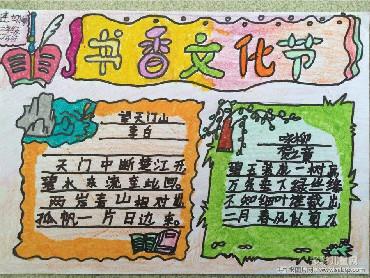 书香文化节
望天门山
李白
天门中断楚江开
碧水东流至此回。
两岸青山相对出
孤帆一片日边来。
咏柳
碧玉妆成一树高
万条垂下绿丝绦
不知细叶谁裁出
二月春风似剪刀